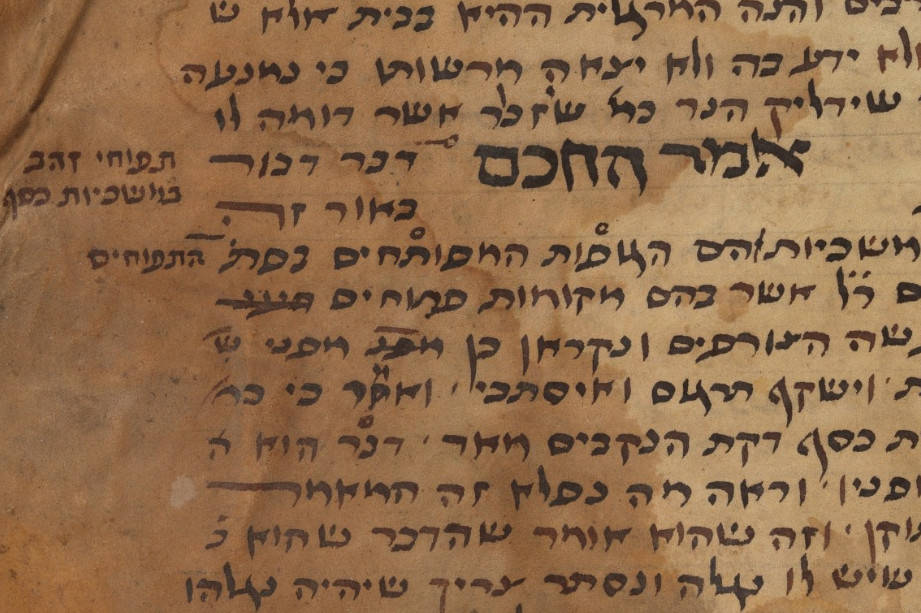 רבים והנה המרגלית ההיא בבית אלא ש
ולא ידע בה ולא יצאה מרשותו כי נמנעה
שידליק הנר כמ' שזכר אשר דומה לו
אמר החכם דבר דבור
תפוחי זהב
במשכיות כסף
באור זה
משכיות הם הגופות המפותחים
התפוחים
ר״ל אשר בהם מקומות פתוחים
עשה הצורפים ונקראו כן מפני ש
ת וישקף תרגום ואיסתכי ואמר כי כמ
ת כסף דקת הנקבים מאד דבר הוא ה
ופניו וראה מה נפלא זה המאמר
וזה שהוא אומר שהדבר שהוא
שיש לו נגלה ונסתר צריך שיהיה נגלהו